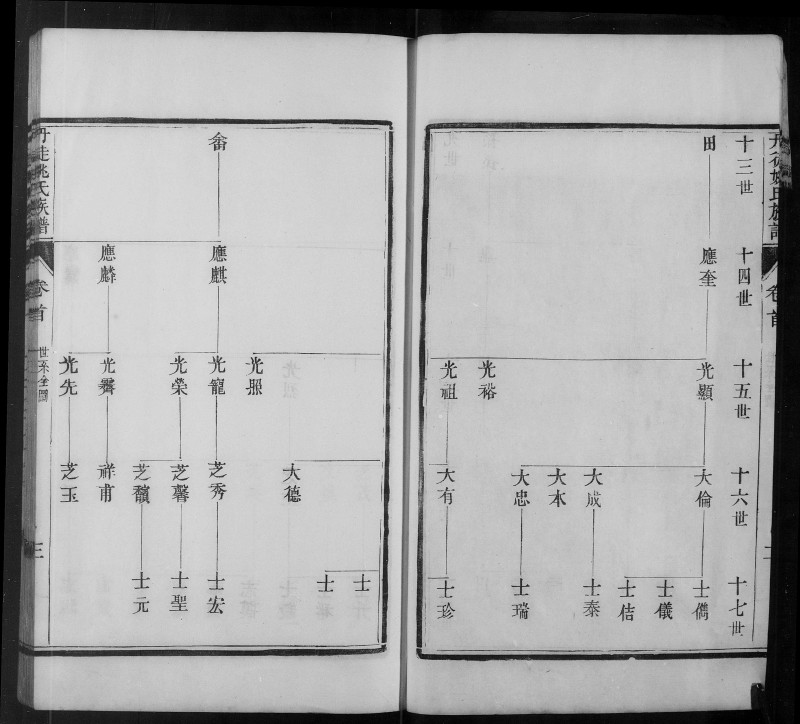 十三世
十四世
十五世
十六世
十七世
田
應奎
光顯
光裕
光祖
大倫
大成
大本
大忠
大有
士儁
士儀
士佶
士泰
士瑞
士珍
卷首
畬
應麒
應麟
光照
光龍
光榮
光霽
光先
大德
芝秀
芝馨
芝馥
祥甫
芝玉
士
士
士宏
士聖
士元
丹徒姚氏族譜
卷首
世系全圖
三